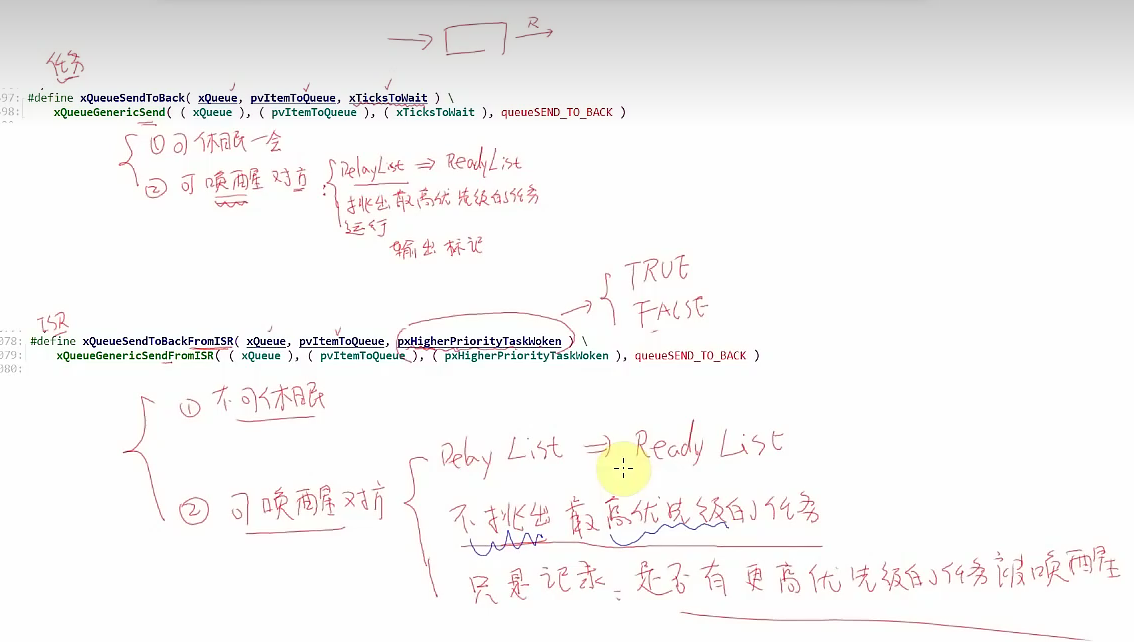 R
任务
97: #define xQueueSendToBack( xQueue, pvItemToQueue, xTicksToWait ) \
98: xQueueGenericSend( ( xQueue ), ( pvItemToQueue ), ( xTicksToWait ), queueSEND_TO_BACK )
① 可休眠一会
② 可唤醒对方:
DelayList ⇒ ReadyList
挑出最高优先级的任务
运行
输出标记
TRUE
FALSE
ISR
078: #define xQueueSendToBackFromISR( xQueue, pvItemToQueue, pxHigherPriorityTaskWoken ) \
079: xQueueGenericSendFromISR( ( xQueue ), ( pvItemToQueue ), ( pxHigherPriorityTaskWoken ), queueSEND_TO_BACK )
080:
① 不可休眠
② 可唤醒对方
Delay List ⇒ Ready List
不挑出最高优先级的任务
只是记录: 是否有更高优先级的任务被唤醒